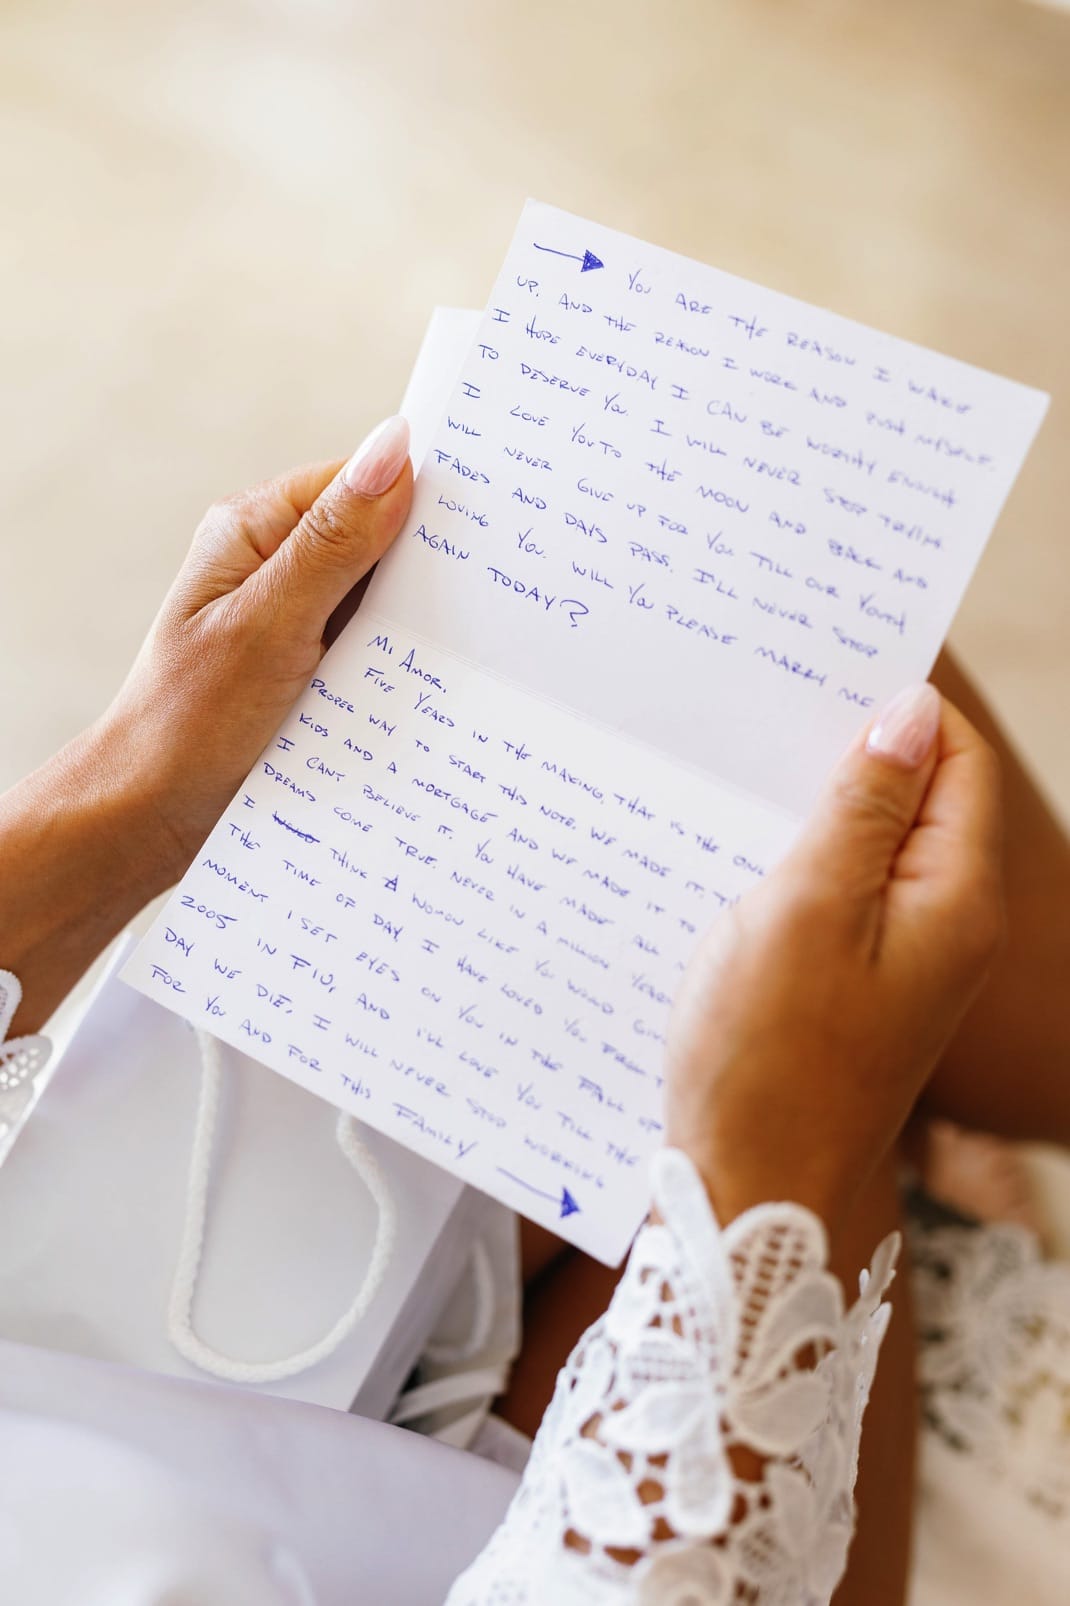 MI AMOR,
FIVE YEARS IN THE MAKING, THAT IS THE
PROPER WAY TO START THIS NOTE. WE MADE IT.
KIDS AND A MORTGAGE AND WE MADE IT TO
I CANT BELIEVE IT. YOU HAVE MADE ALL
DREAMS COME TRUE. NEVER IN A MILLION YEARS
I THINK A WOMAN LIKE YOU WOULD
THE TIME OF DAY. I HAVE LOVED YOU FROM
MOMENT I SET EYES ON YOU IN THE FALL OF
2005 IN FIU, AND I'LL LOVE YOU TILL THE
DAY WE DIE. I WILL NEVER STOP WORKING
FOR YOU AND FOR THIS FAMILY →
→ YOU ARE THE REASON I WAKE
UP, AND THE REASON I WORK AND PUSH MYSELF.
I HOPE EVERYDAY I CAN BE WORTHY ENOUGH
TO DESERVE YOU. I WILL NEVER STOP TRYING.
I LOVE YOU TO THE MOON AND BACK AND
WILL NEVER GIVE UP FOR YOU TILL OUR YOUTH
FADES AND DAYS PASS. I'LL NEVER STOP
LOVING YOU. WILL YOU PLEASE MARRY ME
AGAIN TODAY?